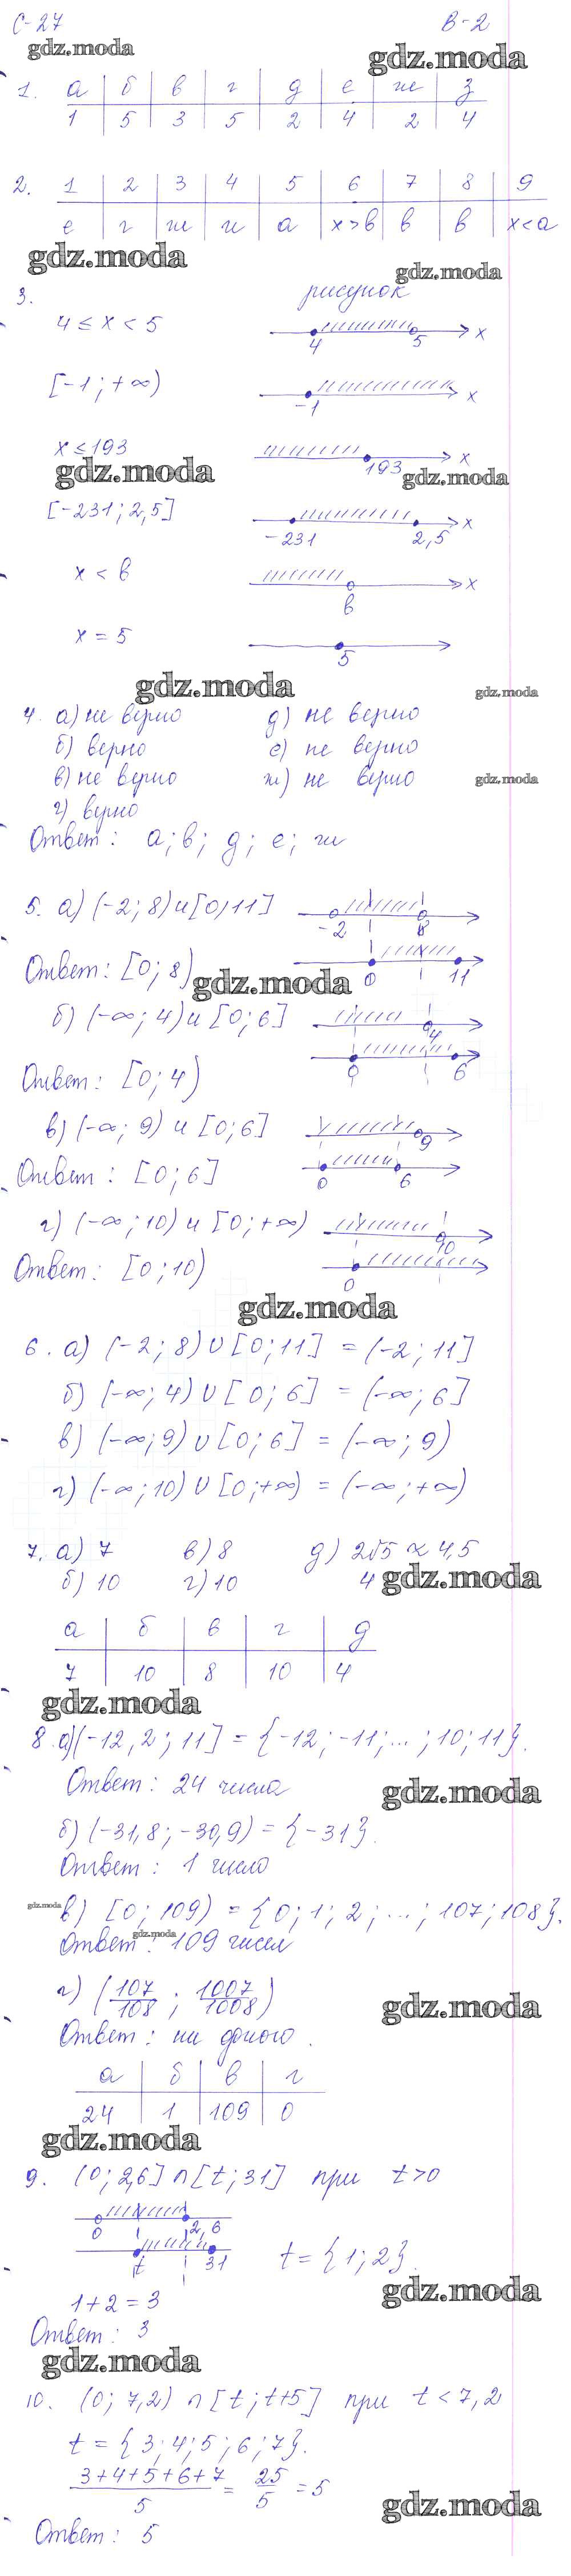 С-27 В-2
gdz.moda gdz.moda
1. а б в г д е ж з
1 5 3 5 2 4 2 4
2. 1 2 3 4 5 6 7 8 9
е г ж и а x>b в в x<a
gdz.moda
gdz.moda
3. рисунок
4 ≤ x < 5 4 5 x
[-1; +∞) -1 x
x ≤ 193 193 x
gdz.moda gdz.moda
[-231; 2,5] -231 2,5 x
x < b b x
x = 5 5
gdz.moda gdz.moda
4. а) не верно д) не верно
б) верно е) не верно
в) не верно ж) не верно
gdz.moda
г) верно
Ответ: а; в; д; е; ж
5. а) (-2; 8) и [0; 11] -2 8
Ответ: [0; 8) 0 11
gdz.moda
б) (-∞; 4) и [0; 6] 4
0 6
Ответ: [0; 4)
в) (-∞; 9) и [0; 6] 9
Ответ: [0; 6] 0 6
г) (-∞; 10) и [0; +∞) 10
Ответ: [0; 10) 0
gdz.moda
6. а) (-2; 8) ∪ [0; 11] = (-2; 11]
б) (-∞; 4) ∪ [0; 6] = (-∞; 6]
в) (-∞; 9) ∪ [0; 6] = (-∞; 9)
г) (-∞; 10) ∪ [0; +∞) = (-∞; +∞)
7. а) 7 в) 8 д) 2√5 ≈ 4,5
б) 10 г) 10 4
gdz.moda
а б в г д
7 10 8 10 4
gdz.moda
8. а) (-12,2; 11] = {-12; -11; ...; 10; 11}.
Ответ: 24 числа
gdz.moda
б) (-31,8; -30,9) = {-31}.
Ответ: 1 число
gdz.moda
в) [0; 109) = {0; 1; 2; ...; 107; 108}.
gdz.moda
Ответ: 109 чисел
г) (107/108; 1007/1008)
gdz.moda
Ответ: ни одного.
а б в г
24 1 109 0
gdz.moda
9. (0; 2,6] ∩ [t; 31] при t>0
0 2,6
t 31 t = {1; 2}.
gdz.moda
1+2=3
Ответ: 3
gdz.moda
10. (0; 7,2) ∩ [t; t+5] при t < 7,2
t = {3; 4; 5; 6; 7}.
(3+4+5+6+7)/5 = 25/5 = 5
gdz.moda
Ответ: 5